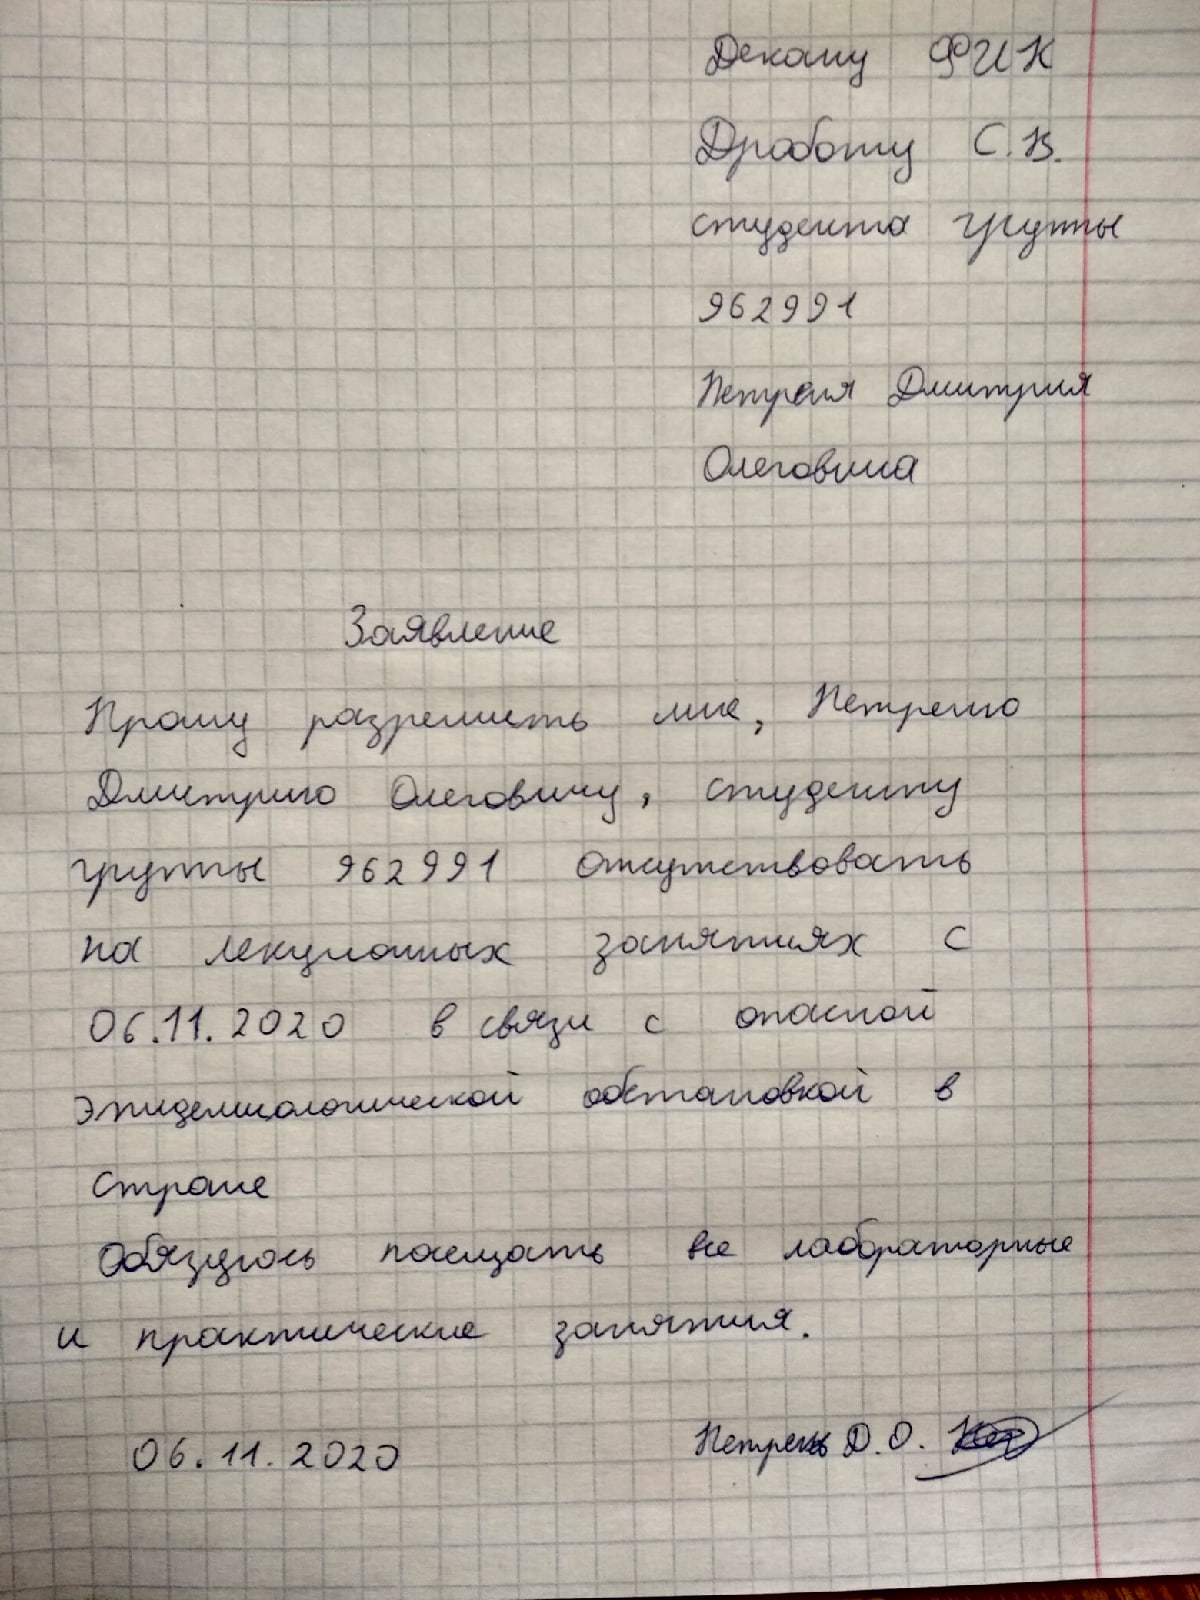 Декану ФИК
Дроботу С.В.
студента группы
962991
Петреня Дмитрия
Олеговича
Заявление
Прошу разрешить мне, Петреню
Дмитрию Олеговичу, студенту
группы 962991 отсутствовать
на лекционных занятиях с
06.11.2020 в связи с опасной
эпидемиологической обстановкой в
стране
Обязуюсь посещать все лабораторные
и практические занятия.
06.11.2020 Петрень Д.О.